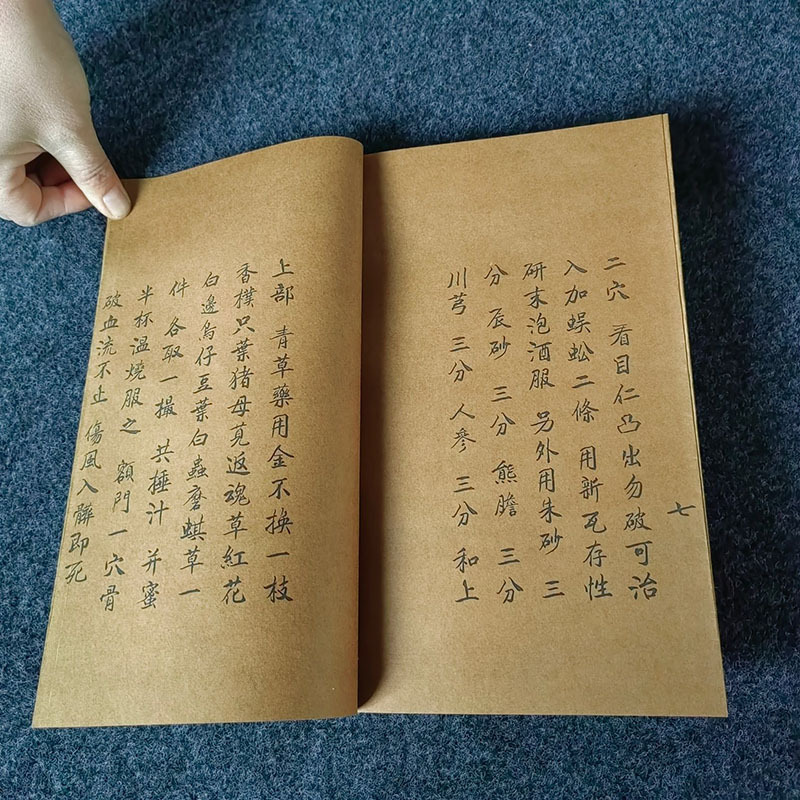 二穴 看目仁凸出勿破可治
入加蜈蚣二條 用新瓦存性
研末泡酒服 另外用朱砂 三
分 辰砂 三分 熊膽 三分
川芎 三分 人參 三分 和上
七
上部 青草藥用金不换一枝
香樸只葉猪母莧返魂草紅花
白邊烏仔豆葉白蟲磨蜞草一
件 各取一撮 共捶汁 并蜜
半杯温燒服之 額門一穴骨
破血流不止 傷風入髒即死